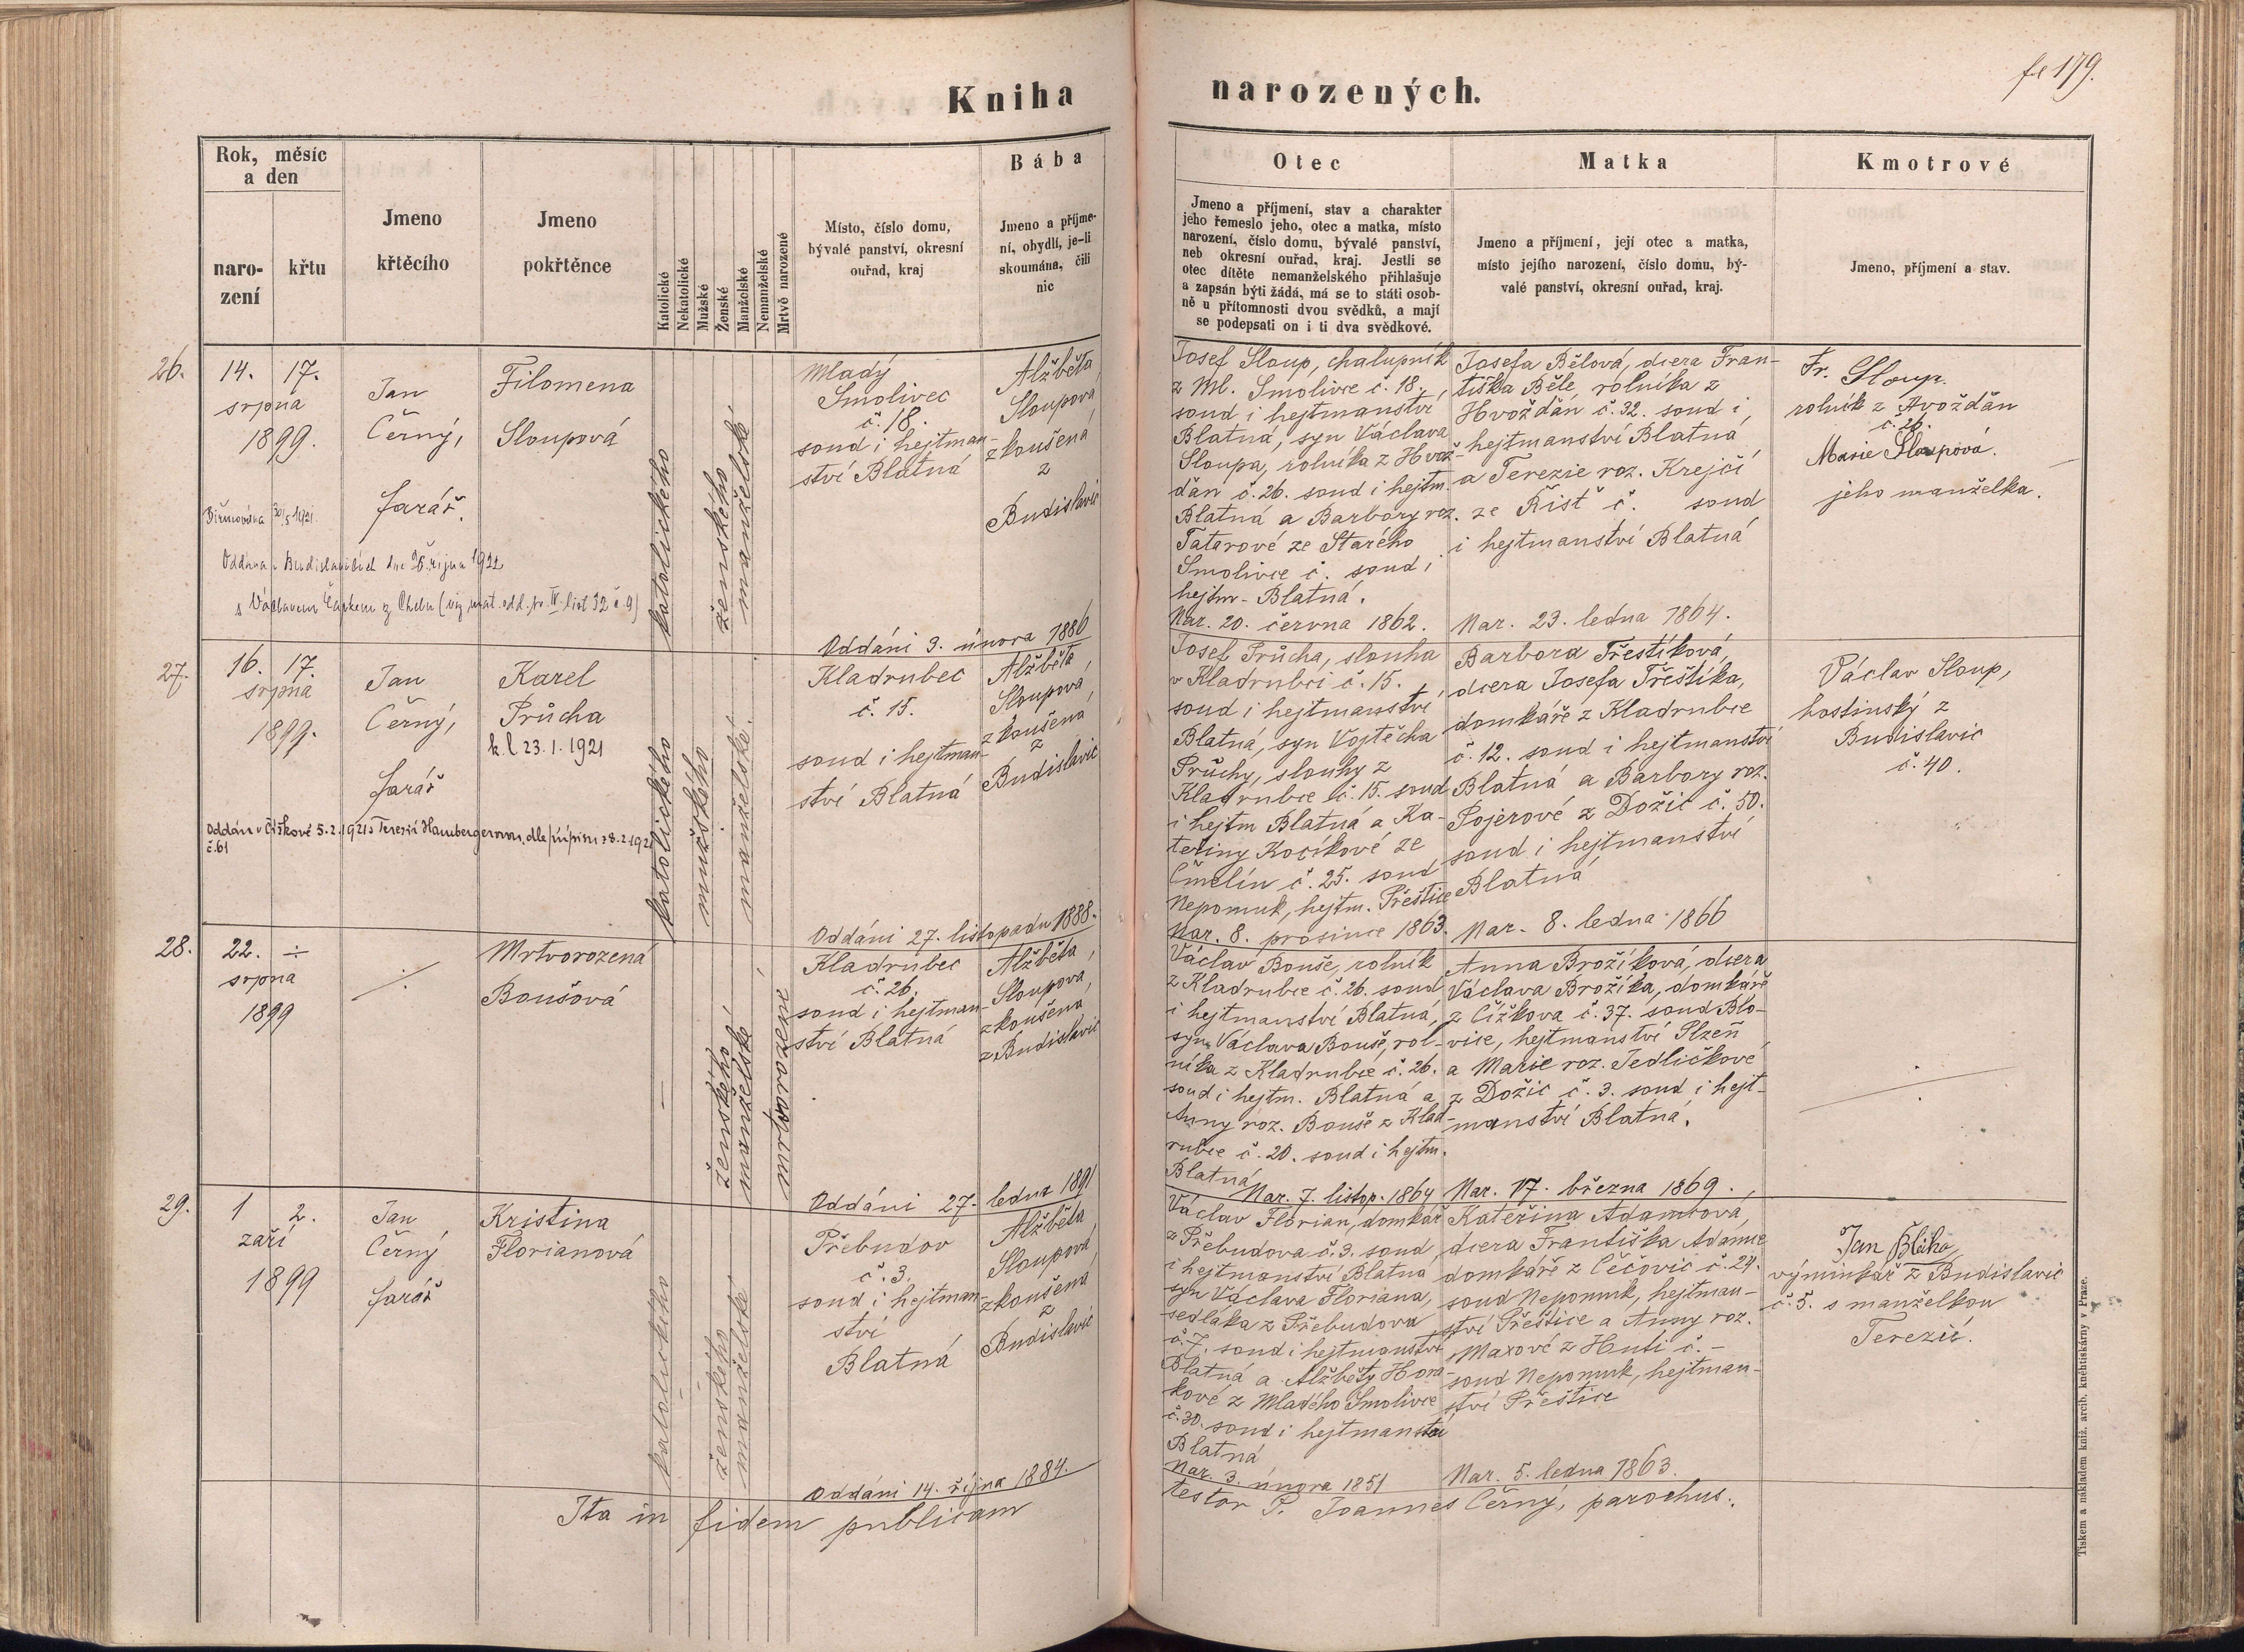 fol 179.
Kniha narozených.
Rok, měsíc
a den
naro-
zení
křtu
Jmeno
křtěcího
Jmeno
pokřtěnce
Katolické
Nekatolické
Mužské
Ženské
Manželské
Nemanželské
Mrtvě narozené
Místo, číslo domu,
bývalé panství, okresní
ouřad, kraj
Bába
Jmeno a příjme-
ní, obydlí, je-li
skoumána, čili
nic
Otec
Jmeno a příjmení, stav a charakter
jeho řemeslo jeho, otec a matka, místo
narození, číslo domu, bývalé panství,
neb okresní ouřad, kraj. Jestli se
otec dítěte nemanželského přihlašuje
a zapsán býti žádá, má se to státi osob-
ně u přítomnosti dvou svědků, a mají
se podepsati on i ti dva svědkové.
Matka
Jmeno a příjmení, její otec a matka,
místo jejího narození, číslo domu, bý-
valé panství, okresní ouřad, kraj.
Kmotrové
Jmeno, příjmení a stav.
26.
14. 17.
srpna
1899.
Biřmována 30/5 1921.
Jan
Černý,
farář.
Filomena
Sloupová
Oddána v Budislavicích dne 26. října 1922
s Václavem Čapkem z Chebu (viz mat. odd. pr. IV. list 32 č. 9)
katolického
ženského
manželské
Mladý
Smolivec
č. 18.
soud i hejtman-
ství Blatná
Oddáni 3. února 1886
Alžběta
Sloupova
zkoušená
z
Budislavic
Josef Sloup, chalupník
z Ml. Smolivce č. 18.,
soud i hejtmanství
Blatná, syn Václava
Sloupa, rolníka z Hvož-
ďan č. 26. soud i hejtm.
Blatná a Barbory roz.
Tatarové ze Starého
Smolivce č. soud i
hejtm. Blatná.
Nar. 20. června 1862.
Josefa Bělová, dcera Fran-
tiška Běle, rolníka z
Hvožďan č. 32. soud i
hejtmanství Blatná
a Terezie roz. Krejčí
ze Řišť č. soud
i hejtmanství Blatná
Nar. 23. ledna 1864.
Fr. Sloup.
rolník z Hvožďan
č. 26.
Marie Sloupová.
jeho manželka.
27.
16. 17.
srpna
1899.
Jan
Černý,
farář
Karel
Průcha
k. l. 23. 1. 1921
Oddán v Čížkově 5. 2. 1921 s Terezií Hambergerovou, dle přípisu z 8. 2. 1921
č. 61
katolického
mužského
manželské.
Kladrubec
č. 15.
soud i hejtman-
ství Blatná
Oddáni 27. listopadu 1888.
Alžběta
Sloupova,
zkoušena
z
Budislavic
Josef Průcha, slouha
v Kladrubci č. 15.
soud i hejtmanství
Blatná, syn Vojtěcha
Průchy, slouhy z
Kladrubce č. 15. soud
i hejtm Blatná a Ka-
teřiny Kocíkové ze
Čmelín č. 25. soud
Nepomuk, hejtm. Přeštice
Nar. 8. prosince 1863.
Barbora Třeštíková,
dcera Josefa Třeštíka,
domkáře z Kladrubce
č. 12. soud i hejtmanství
Blatná a Barbory roz.
Pojerové z Dožic č. 50.
soud i hejtmanství
Blatná
Nar. 8. ledna 1866
Václav Sloup,
hostinský z
Budislavic
č. 40.
28.
22. ÷
srpna
1899
Mrtvorozená
Boušová
ženského
manželské
mrtvorozené
Kladrubec
č. 26.
soud i hejtman-
ství Blatná
Oddáni 27. ledna 1891
Alžběta,
Sloupova,
zkoušena
z Budislavic
Václav Bouše, rolník
z Kladrubce č. 26. soud
i hejtmanství Blatná,
syn Václava Bouše, rol-
níka z Kladrubce č. 26.
soud i hejtm. Blatná a
Anny roz. Bouše z Klad-
rubce č. 20. soud i hejtm.
Blatná
Nar. 7. listop. 1864
Anna Brožíková, dcera
Václava Brožíka, domkáře
z Čížkova č. 37. soud Blo-
vice, hejtmanství Plzeň
a Marie roz. Jedličkové
z Dožic č. 3. soud i hejt-
manství Blatná.
Nar. 17. března 1869.
29.
1 2.
září
1899
Jan
Černý
farář
Kristina
Florianová
katolického
ženského
manželské
Přebudov
č. 3.
soud i hejtman-
ství
Blatná
Oddáni 14. října 1884.
Alžběta
Sloupová,
zkoušená
z
Budislavic
Václav Florian, domkář
z Přebudova č. 3. soud
i hejtmanství Blatná
syn Václava Floriana,
sedláka z Přebudova
č. 7. soud i hejtmanství
Blatná a Alžběty Hora-
kové z Mladého Smolivce
č. 30. soud i hejtmanství
Blatná
Nar. 3. února 1851
Kateřina Adamcová,
dcera Františka Adamce
domkáře z Čečovic č. 24.
soud Nepomuk, hejtman-
ství Přeštice a Anny roz.
Maxové z Huti č. -
soud Nepomuk, hejtman-
ství Přeštice
Nar. 5. ledna 1863.
Jan Bláha,
výminkář z Budislavic
č. 5. s manželkou
Terezií.
Ita in fidem publicam testor P. Joannes Černý, parochus.
Tiskem a nákladem kníž. arcib. kněhtiskárny v Praze.